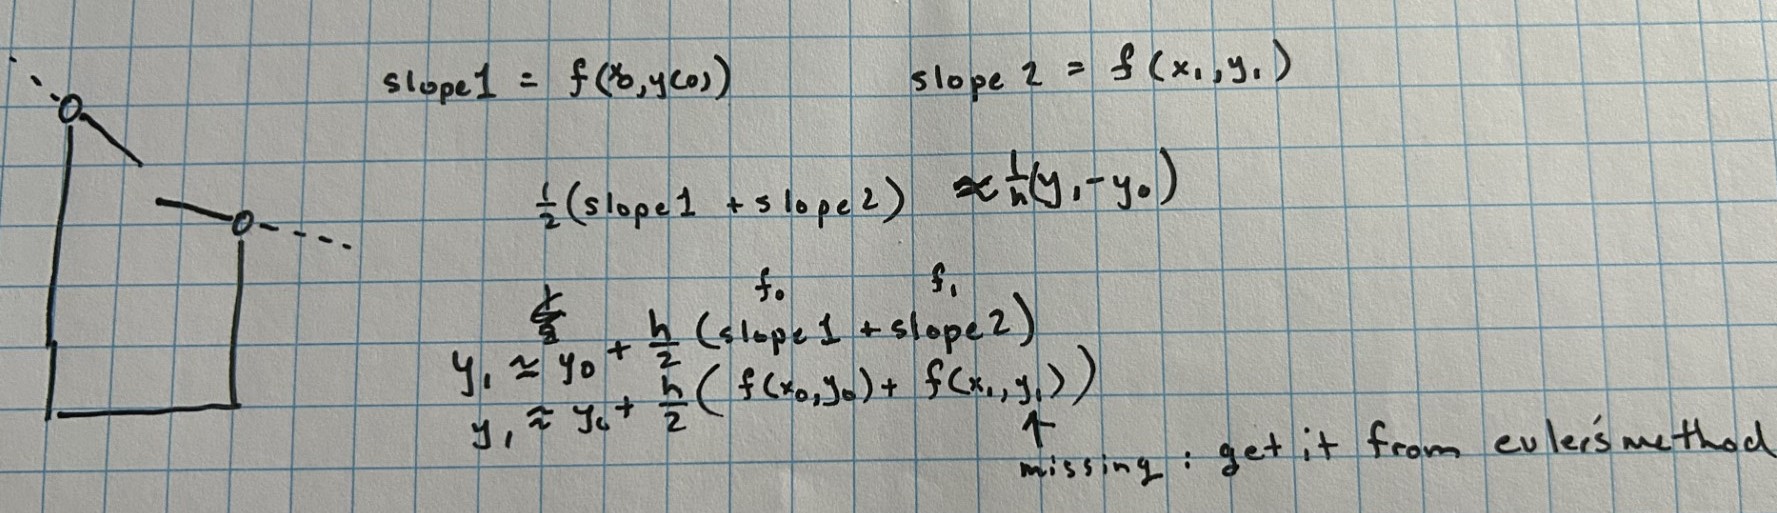 slope1 = f(x0, y(0)) slope 2 = f(x₁, y₁)
½(slope1 + slope2) ≈ 1/h(y₁ - y₀)
f₀ f₁
y₁ ≈ y₀ + h/2 (slope 1 + slope 2)
y₁ ≈ y₀ + h/2 (f(x₀, y₀) + f(x₁, y₁))
↑
missing : get it from euler's method